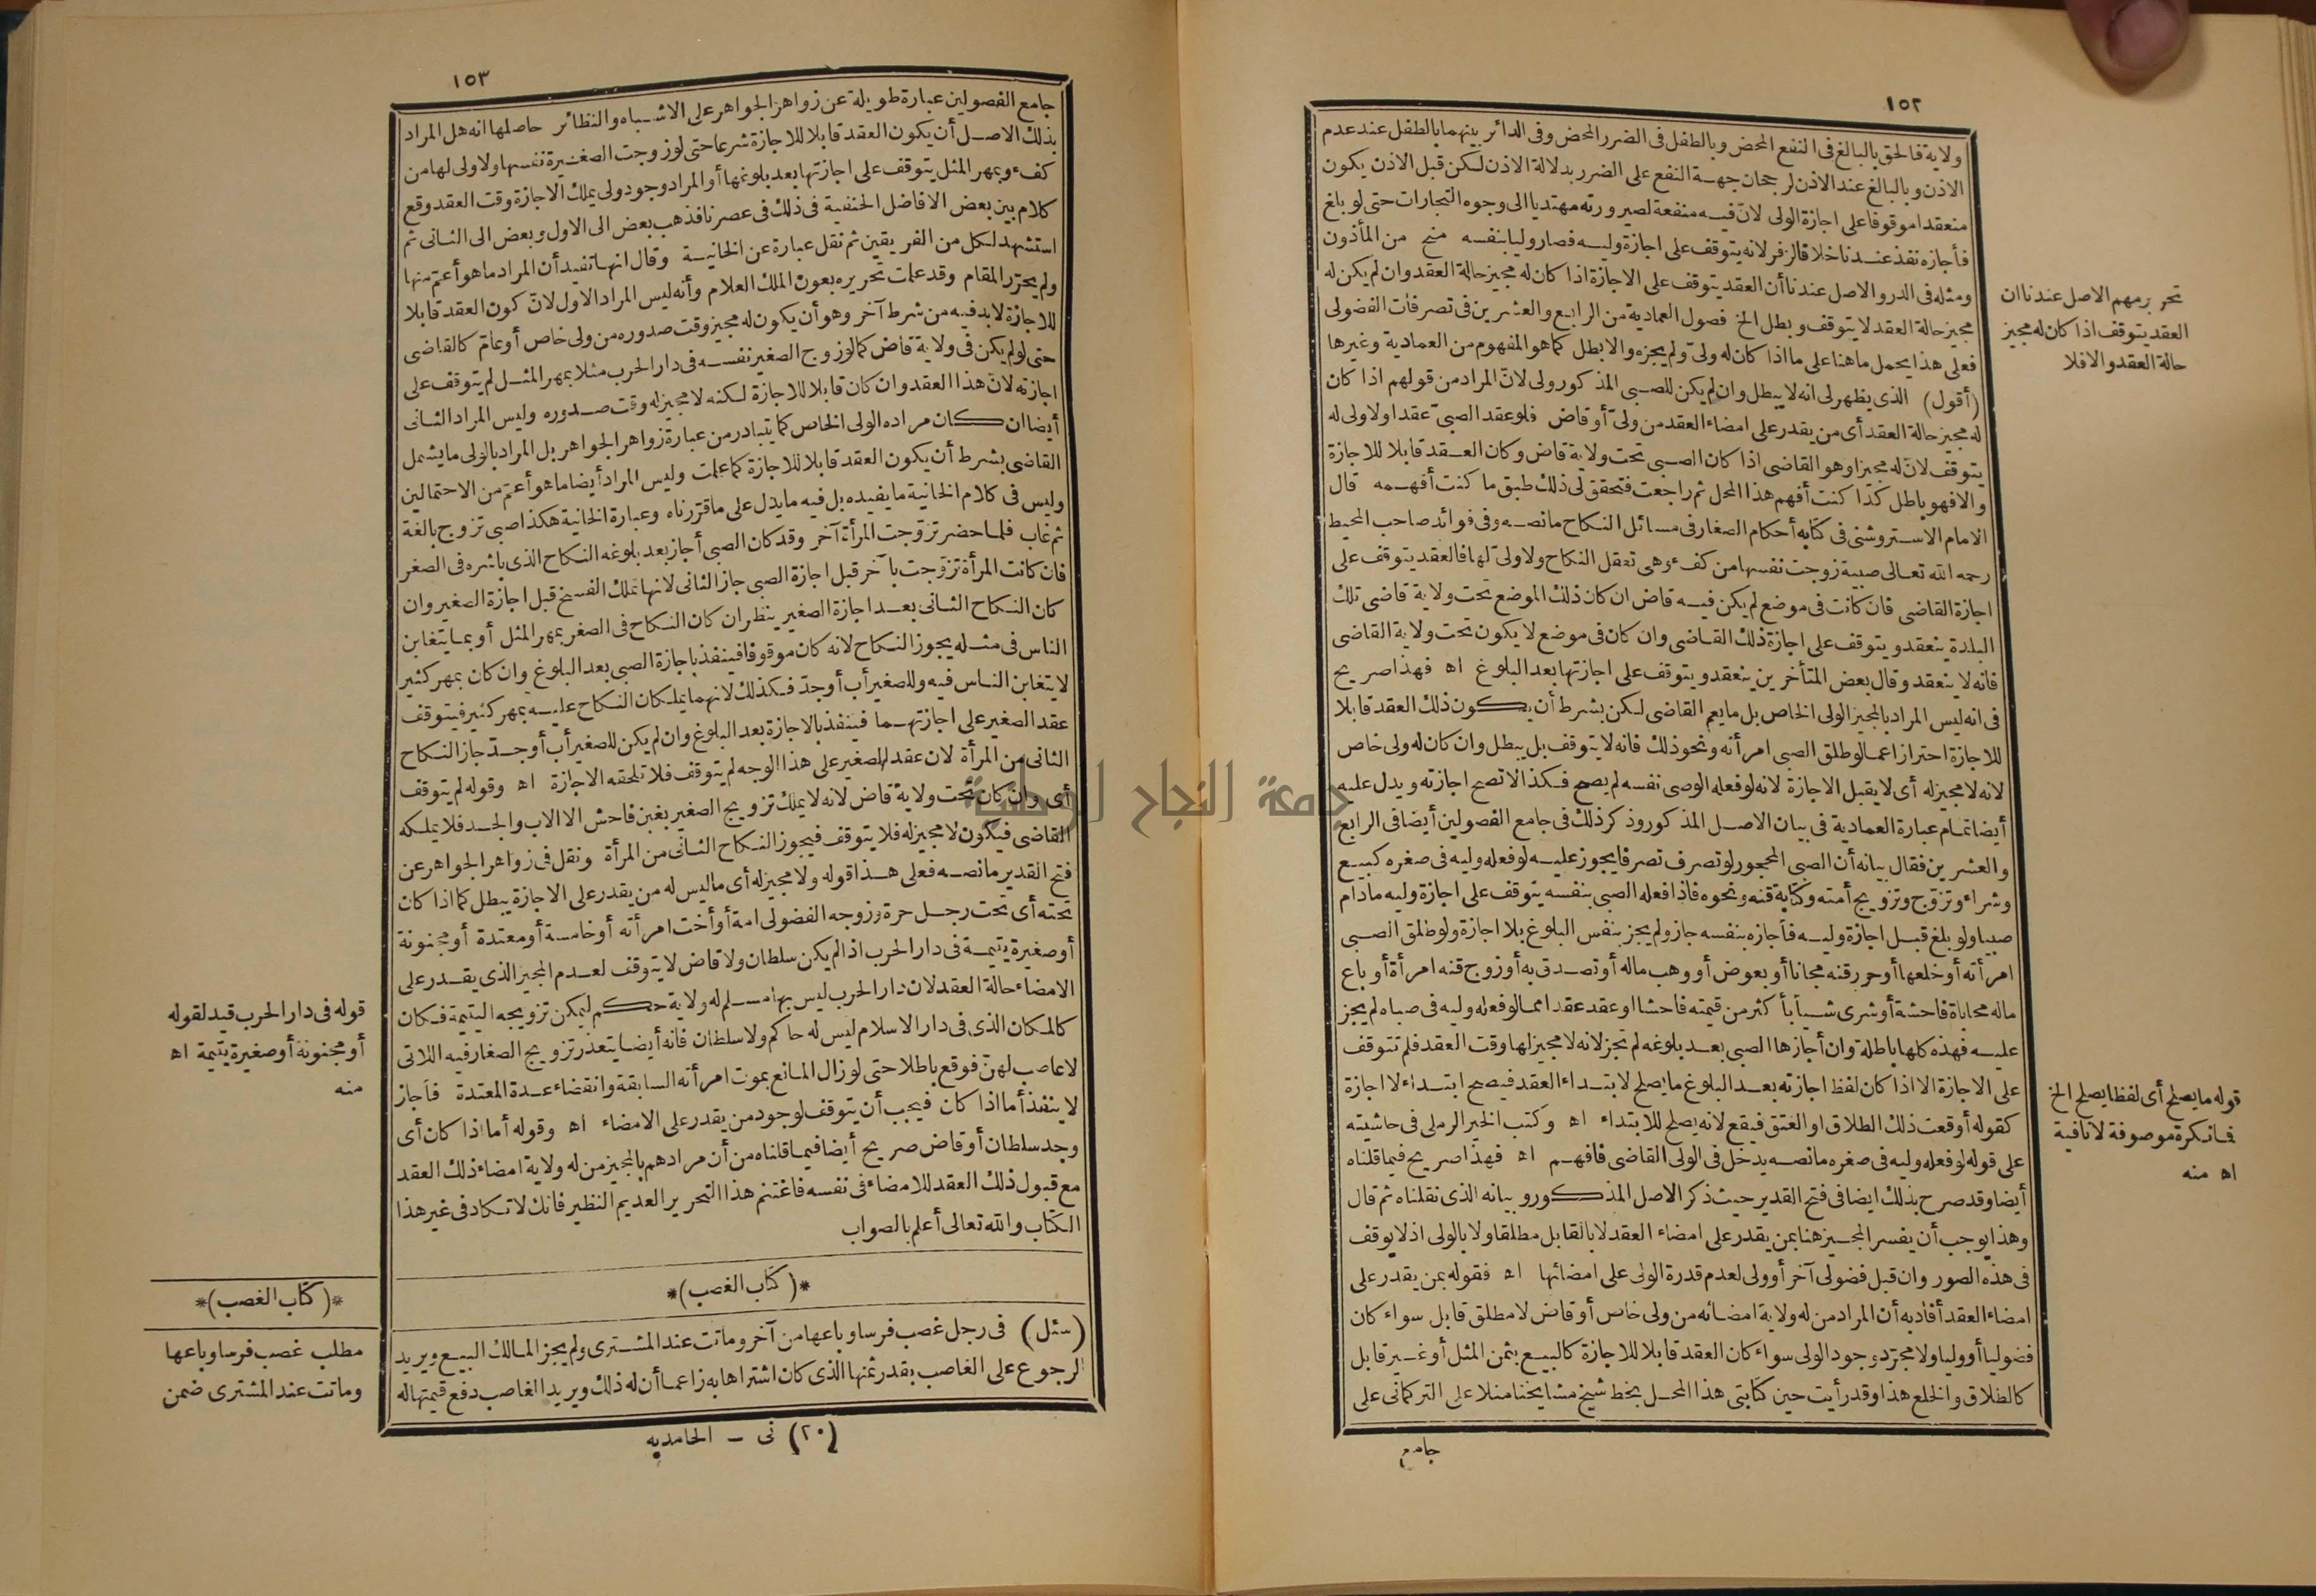 ١٥٢
ولاية فالحق بالبالغ فى النفع المحض وبالطفل فى الضرر المحض وفى الدائر بينهما بالطفل عند عدم
الاذن وبالبالغ عند الاذن لرجحان جهة النفع على الضرر بدلالة الاذن لكن قبل الاذن يكون
منعقدا موقوفا على اجازة الولى لان فيه منفعة لصيرورته مهتديا الى وجوه التجارات حتى لو بلغ
فأجازه نفذ عندنا خلافا لزفر لانه يتوقف على اجازة وليه فصار وليا بنفسه منح من المأذون
ومثله فى الدرر والاصل عندنا أن العقد يتوقف على الاجازة اذا كان له مجيز حالة العقد وان لم يكن له
مجيز حالة العقد لا يتوقف وبطل الخ فصول العمادية من الرابع والعشرين فى تصرفات الفضولى
فعلى هذا يحمل ما هنا على ما اذا كان له ولىّ ولم يجزه والا بطل كما هو المفهوم من العمادية وغيرها
(أقول) الذى يظهر لى انه لا يبطل وان لم يكن للصبى المذكور ولى لانّ المراد من قولهم اذا كان
له مجيز حالة العقد أى من يقدر على امضاء العقد من ولىّ أو قاض فلو عقد الصبىّ عقدا ولا ولى له
يتوقف لانّ له مجيزا وهو القاضى اذا كان الصبى تحت ولاية قاض وكان العقد قابلا للاجازة
والا فهو باطل كذا كنت أفهم هذا المحل ثم راجعت فتحقق لى ذلك طبق ما كنت أفهمه قال
الامام الاستروشنى فى كتابه أحكام الصغار فى مسائل النكاح مانصه وفى فوائد صاحب المحيط
رحمه الله تعالى صبية زوجت نفسها من كفء وهى تعقل النكاح ولا ولىّ لها فالعقد يتوقف على
اجازة القاضى فان كانت فى موضع لم يكن فيه قاض ان كان ذلك الموضع تحت ولاية قاضى تلك
البلدة ينعقد ويتوقف على اجازة ذلك القاضى وان كان فى موضع لا يكون تحت ولاية القاضى
فانه لا ينعقد وقال بعض المتأخرين ينعقد ويتوقف على اجازتها بعد البلوغ اه فهذا صريح
فى انه ليس المراد بالمجيز الولى الخاص بل ما يعم القاضى لكن بشرط أن يكون ذلك العقد قابلا
للاجازة احترازا عما لو طلق الصبى امرأته ونحو ذلك فانه لا يتوقف بل يبطل وان كان له ولى خاص
لانه لا مجيز له أى لا يقبل الاجازة لانه لو فعله الوصى نفسه لم يصح فكذا لا تصح اجازته ويدل عليه
أيضا تمام عبارة العمادية فى بيان الاصل المذكور وذكر ذلك فى جامع الفصولين أيضا فى الرابع
والعشرين فقال بيانه أن الصبى المحجور لو تصرف تصرفا يجوز عليه لو فعله وليه فى صغره كبيع
وشراء وتزوّج وتزويج أمته وكتابة قنه ونحوه فاذا فعله الصبى بنفسه يتوقف على اجازة وليه مادام
صبيا ولو بلغ قبل اجازة وليه فأجازه بنفسه جاز ولم يجز بنفس البلوغ بلا اجازة ولو طلق الصبى
امرأته أو خلعها أو حرر قنه مجانا أو بعوض أو وهب ماله أو تصدق به أو زوج قنه امرأة أو باع
ماله محاباة فاحشة أو شرى شيأ بأكثر من قيمته فاحشا او عقد عقدا مما لو فعله وليه فى صباه لم يجز
عليه فهذه كلها باطلة وان أجازها الصبى بعد بلوغه لم تجز لانه لا مجيز لها وقت العقد فلم تتوقف
على الاجازة الا اذا كان لفظ اجازته بعد البلوغ ما يصلح لابتداء العقد فيصح ابتداء لا اجازة
كقوله أوقعت ذلك الطلاق او العتق فيقع لانه يصلح للابتداء اه وكتب الخير الرملى فى حاشيته
على قوله لو فعله وليه فى صغره مانصه يدخل فى الولى القاضى فافهم اه فهذا صريح فيما قلناه
أيضا وقد صرح بذلك ايضا فى فتح القدير حيث ذكر الاصل المذكور وبيانه الذى نقلناه ثم قال
وهذا يوجب أن يفسر المجيز هنا بمن يقدر على امضاء العقد لا بالقابل مطلقا ولا بالولى اذ لا يوقف
فى هذه الصور وان قبل فضولى آخر أو ولى لعدم قدرة الولى على امضائها اه فقوله بمن يقدر على
امضاء العقد أفاد به أن المراد من له ولاية امضائه من ولى خاص أو قاض لا مطلق قابل سواء كان
فضوليا أو وليا ولا مجرّد وجود الولى سواء كان العقد قابلا للاجازة كالبيع بثمن المثل أو غير قابل
كالطلاق والخلع هذا وقد رأيت حين كتابتى هذا المحل بخط شيخ مشايخنا منلا على التركمانى على
جامع
تحرير مهم الاصل عندنا ان
العقد يتوقف اذا كان له مجيز
حالة العقد والا فلا
قوله ما يصلح أى لفظا يصلح الخ
فما نكرة موصوفة لا نافية
اه منه
١٥٣
جامع الفصولين عبارة طويلة عن زواهر الجواهر على الاشباه والنظائر حاصلها انه هل المراد
بذلك الاصل أن يكون العقد قابلا للاجازة شرعا حتى لو زوجت الصغيرة نفسها ولا ولى لها من
كفء وبمهر المثل يتوقف على اجازتها بعد بلوغها أو المراد وجود ولى يملك الاجازة وقت العقد وقع
كلام بين بعض الافاضل الحنفية فى ذلك فى عصرنا فذهب بعض الى الاول وبعض الى الثانى ثم
استشهد لكل من الفريقين ثم نقل عبارة عن الخانية وقال انها تفيد أن المراد ما هو أعمّ منها
ولم يحرّر المقام وقد علمت تحريره بعون الملك العلام وأنه ليس المراد الاول لانّ كون العقد قابلا
للاجازة لابد فيه من شرط آخر وهو أن يكون له مجيز وقت صدوره من ولى خاص أو عامّ كالقاضى
حتى لو لم يكن فى ولاية قاض كما لو زوج الصغير نفسه فى دار الحرب مثلا بمهر المثل لم يتوقف على
اجازته لانّ هذا العقد وان كان قابلا للاجازة لكنه لا مجيز له وقت صدوره وليس المراد الثانى
أيضا ان كان مراده الولى الخاص كما يتبادر من عبارة زواهر الجواهر بل المراد بالولى ما يشمل
القاضى بشرط أن يكون العقد قابلا للاجازة كما علمت وليس المراد أيضا ما هو أعمّ من الاحتمالين
وليس فى كلام الخانية ما يفيده بل فيه ما يدل على ما قرّرناه وعبارة الخانية هكذا صبى تزوج بالغة
ثم غاب فلما حضر تزوّجت المرأة آخر وقد كان الصبى أجاز بعد بلوغه النكاح الذى باشره فى الصغر
فان كانت المرأة تزوّجت بآخر قبل اجازة الصبى جاز الثانى لانها تملك الفسخ قبل اجازة الصغير وان
كان النكاح الثانى بعد اجازة الصغير ينظر ان كان النكاح فى الصغر بمهر المثل أو بما يتغابن
الناس فى مثله يجوز النكاح لانه كان موقوفا فينفذ باجازة الصبى بعد البلوغ وان كان بمهر كثير
لا يتغابن الناس فيه وللصغير أب أو جدّ فكذلك لانهما يملكان النكاح عليه بمهر كثير فيتوقف
عقد الصغير على اجازتهما فينفذ بالاجازة بعد البلوغ وان لم يكن للصغير أب أو جدّ جاز النكاح
الثانى من المرأة لان عقد الصغير على هذا الوجه لم يتوقف فلا تلحقه الاجازة اه وقوله لم يتوقف
أى وان كان تحت ولاية قاض لانه لا يملك تزويج الصغير بغبن فاحش الا الاب والجد فلا يملكه
القاضى فيكون لا مجيز له فلا يتوقف فيجوز النكاح الثانى من المرأة ونقل فى زواهر الجواهر عن
فتح القدير مانصه فعلى هذا قوله ولا مجيز له أى ما ليس له من يقدر على الاجازة يبطل كما اذا كان
تحته أى تحت رجل حرة وزوجه الفضولى امة أو أخت امرأته أو خامسة أو معتدة أو مجنونة
أو صغيرة يتيمة فى دار الحرب اذا لم يكن سلطان ولا قاض لا يتوقف لعدم المجيز الذى يقدر على
الامضاء حالة العقد لان دار الحرب ليس بها مسلم له ولاية حكم ليمكن تزويجه اليتيمة فكان
كالمكان الذى فى دار الاسلام ليس له حاكم ولا سلطان فانه أيضا يتعذر تزويج الصغار فيه اللاتى
لا عاصب لهنّ فوقع باطلا حتى لو زال المانع بموت امرأته السابقة وانقضاء عدة المعتدة فأجاز
لا ينفذ أما اذا كان فيجب أن يتوقف لوجود من يقدر على الامضاء اه وقوله أما اذا كان أى
وجد سلطان أو قاض صريح أيضا فيما قلناه من أن مرادهم بالمجيز من له ولاية امضاء ذلك العقد
مع قبول ذلك العقد للامضاء فى نفسه فاغتنم هذا التحرير العديم النظير فانك لا تكاد فى غير هذا
الكتاب والله تعالى أعلم بالصواب
*(كتاب الغصب)*
(سئل) فى رجل غصب فرسا وباعها من آخر وماتت عند المشترى ولم يجز المالك البيع ويريد
الرجوع على الغاصب بقدر ثمنها الذى كان اشتراها به زاعما أن له ذلك ويريد الغاصب دفع قيمتها له
(٢٠) نى - الحامديه
قوله فى دار الحرب قيد لقوله
أو مجنونة أو صغيرة يتيمة اه
منه
*(كتاب الغصب)*
مطلب غصب فرسا وباعها
وماتت عند المشترى ضمن
جامعة النجاح الوطنية